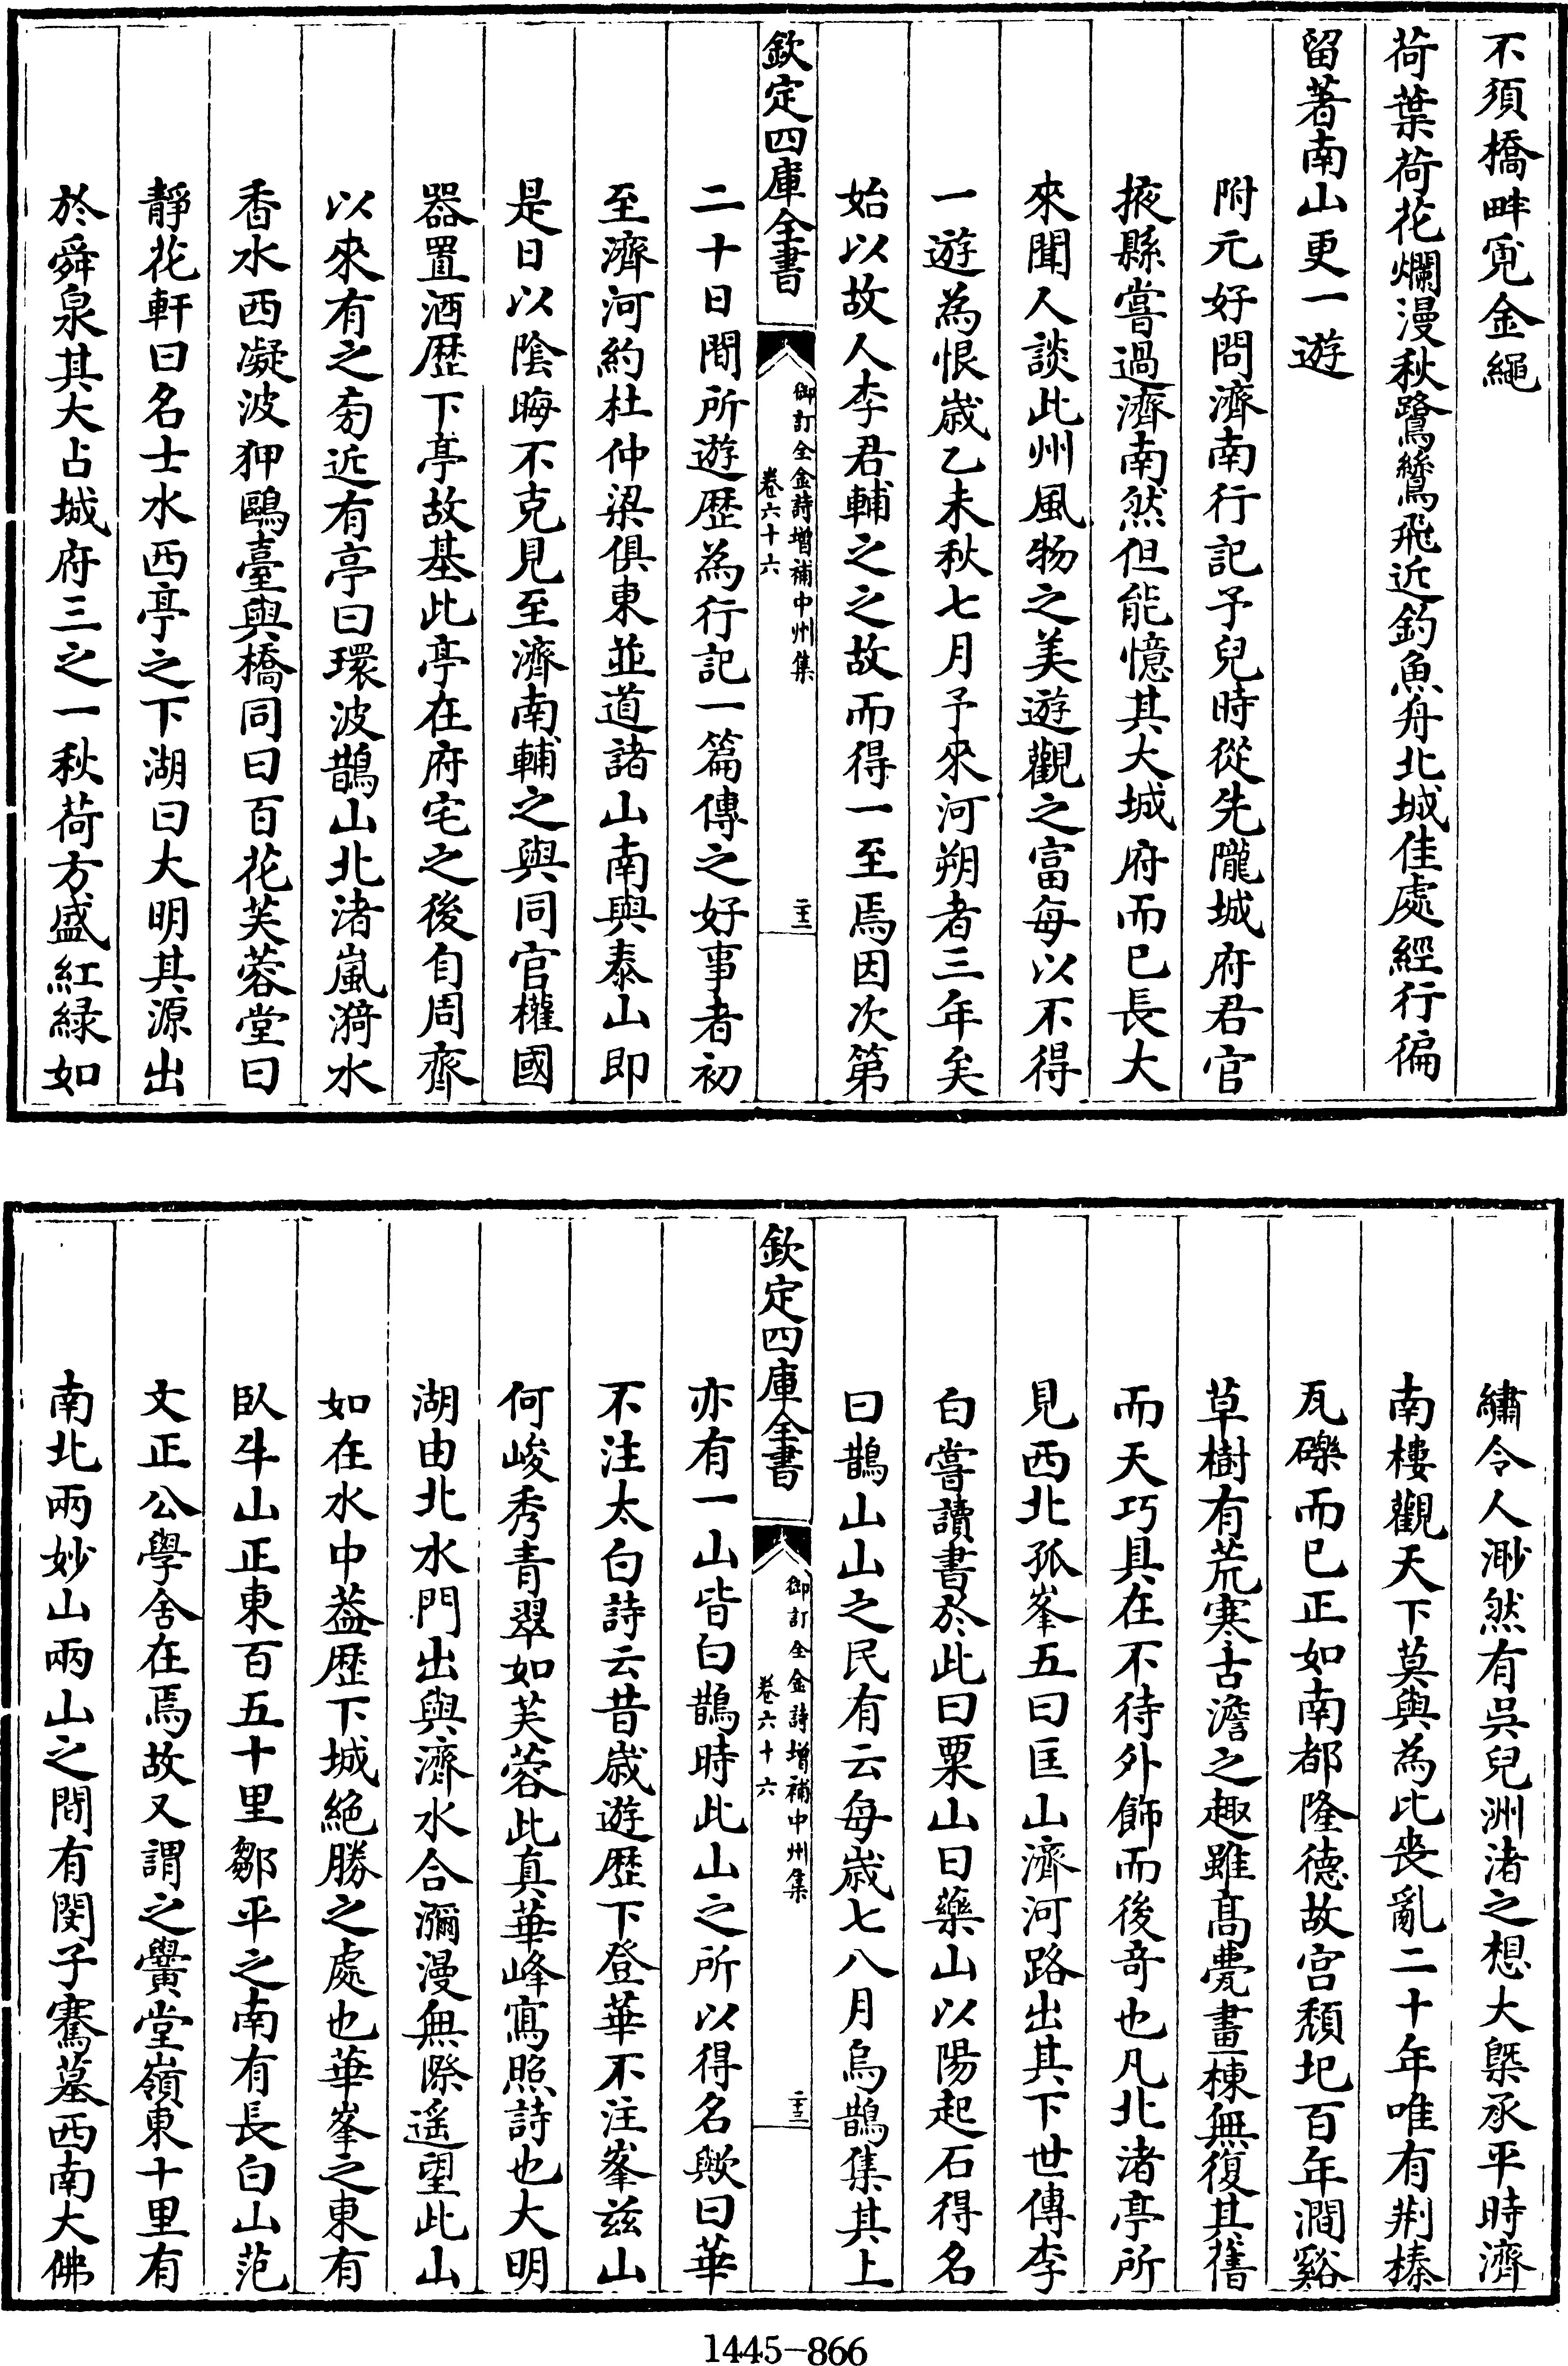 不須橋畔覔金繩
荷葉荷花爛漫秋鷺鷥飛近釣魚舟北城佳處經行徧
留著南山更一遊
附元好問濟南行記予兒時從先隴城府君官
掖縣嘗過濟南然但能憶其大城府而已長大
來聞人談此州風物之美遊觀之富每以不得
一遊為恨歲乙未秋七月予來河朔者三年矣
始以故人李君輔之之故而得一至焉因次第
欽定四庫全書
御訂全金詩增補中州集
卷六十六
二十日間所遊歷為行記一篇傳之好事者初
至濟河約杜仲梁俱東並道諸山南與泰山即
是日以陰晦不克見至濟南輔之與同官權國
器置酒歴下亭故基此亭在府宅之後自周齊
以來有之旁近有亭曰環波鵲山北渚嵐漪水
香水西凝波狎鷗臺與橋同曰百花芙蓉堂曰
靜花軒曰名士水西亭之下湖曰大明其源出
於舜泉其大占城府三之一秋荷方盛紅緑如
繡令人渺然有吳兒洲渚之想大槩承平時濟
南樓觀天下莫與為比喪亂二十年唯有荆榛
瓦礫而已正如南都隆德故宫頽圯百年澗谿
草樹有荒寒古澹之趣雖髙甍畫棟無復其舊
而天巧具在不待外飾而後竒也凡北渚亭所
見西北孤峯五曰匡山濟河路出其下世傳李
白嘗讀書於此曰粟山曰藥山以陽起石得名
曰鵲山山之民有云每歲七八月烏鵲集其上
欽定四庫全書
御訂全金詩增補中州集
卷六十六
亦有一山皆曰鵲時此山之所以得名歟曰華
不注太白詩云昔歲遊歴下登華不注峯兹山
何峻秀青翠如芙蓉此真華峰寫照詩也大明
湖由北水門出與濟水合瀰漫無際遥望此山
如在水中葢歴下城絶勝之處也華峯之東有
臥牛山正東百五十里鄒平之南有長白山范
文正公學舍在焉故又謂之黌堂嶺東十里有
南北兩妙山兩山之間有閔子騫墓西南大佛
1445-866